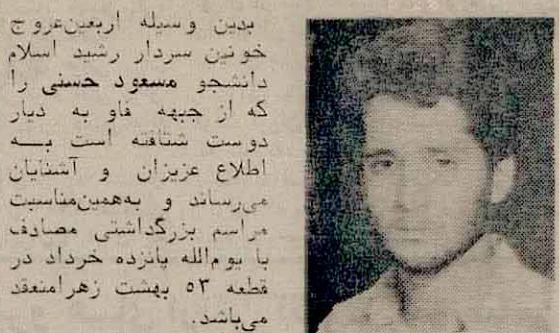 بدین وسیله اربعین‌عروج
خونین سردار رشید اسلام
دانشجو مسعود حسنی را
که از جبهه فاو به دیار
دوست شتافته است به
اطلاع عزیزان و آشنایان
می‌رساند و به‌همین‌مناسبت
مراسم بزرگداشتی مصادف
با یوم‌الله پانزده خرداد در
قطعه ۵۳ بهشت زهرا منعقد
می‌باشد.